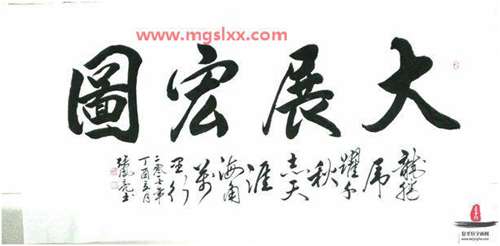 www.mgslxx.com
大展宏圖
龍騰
虎
躍年
秋
志天
涯
海角
萬
里行
二零一七年
丁酉五月